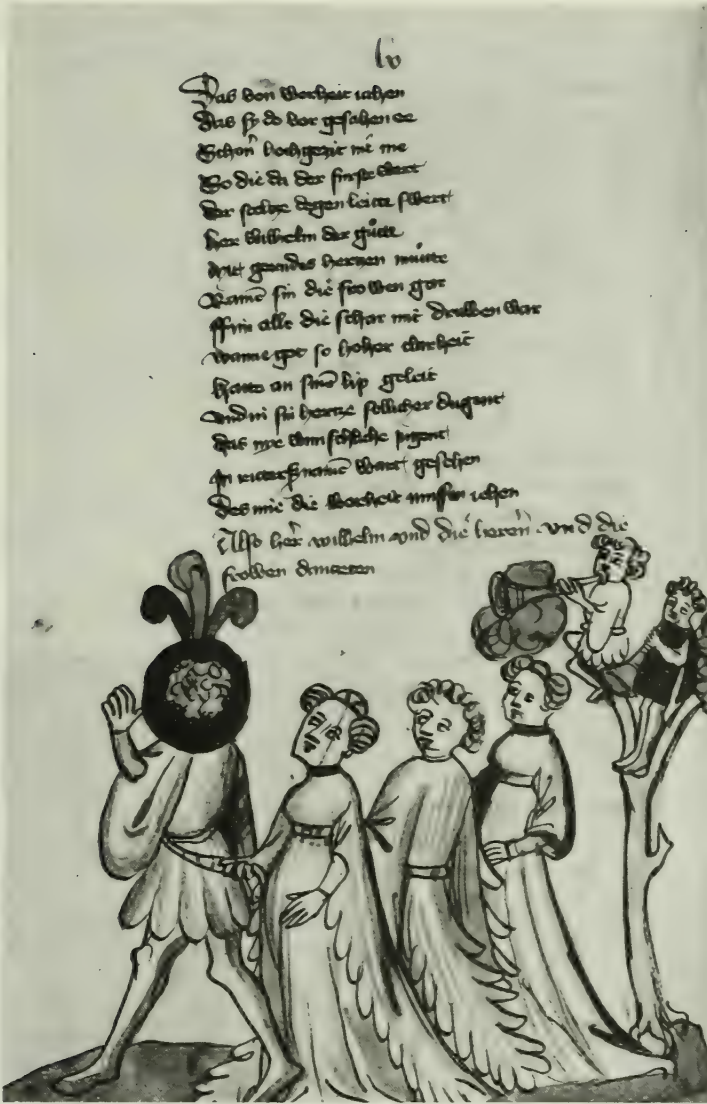 lv
Das von worheit iehen
Das sy do vor gesahen ee
Schon hochgezit nie me
So die da der furste wert
der stoltze degen leitte swert
her wilhelm der gůtte
mit gandes hertzen můtte
Name sin die frowen gar
Ffin alle die schar mit drulben war
wanne got so hoher clarheit
hatte an sine lip geleit
und in sin hertze sollicher dugent
das nie wunschliche jugent
Jn ritters name wart gesehen
Des mie die worheit mussin iehen
Also her wilhelm vnd die heren vnd die
frowen dantzeten